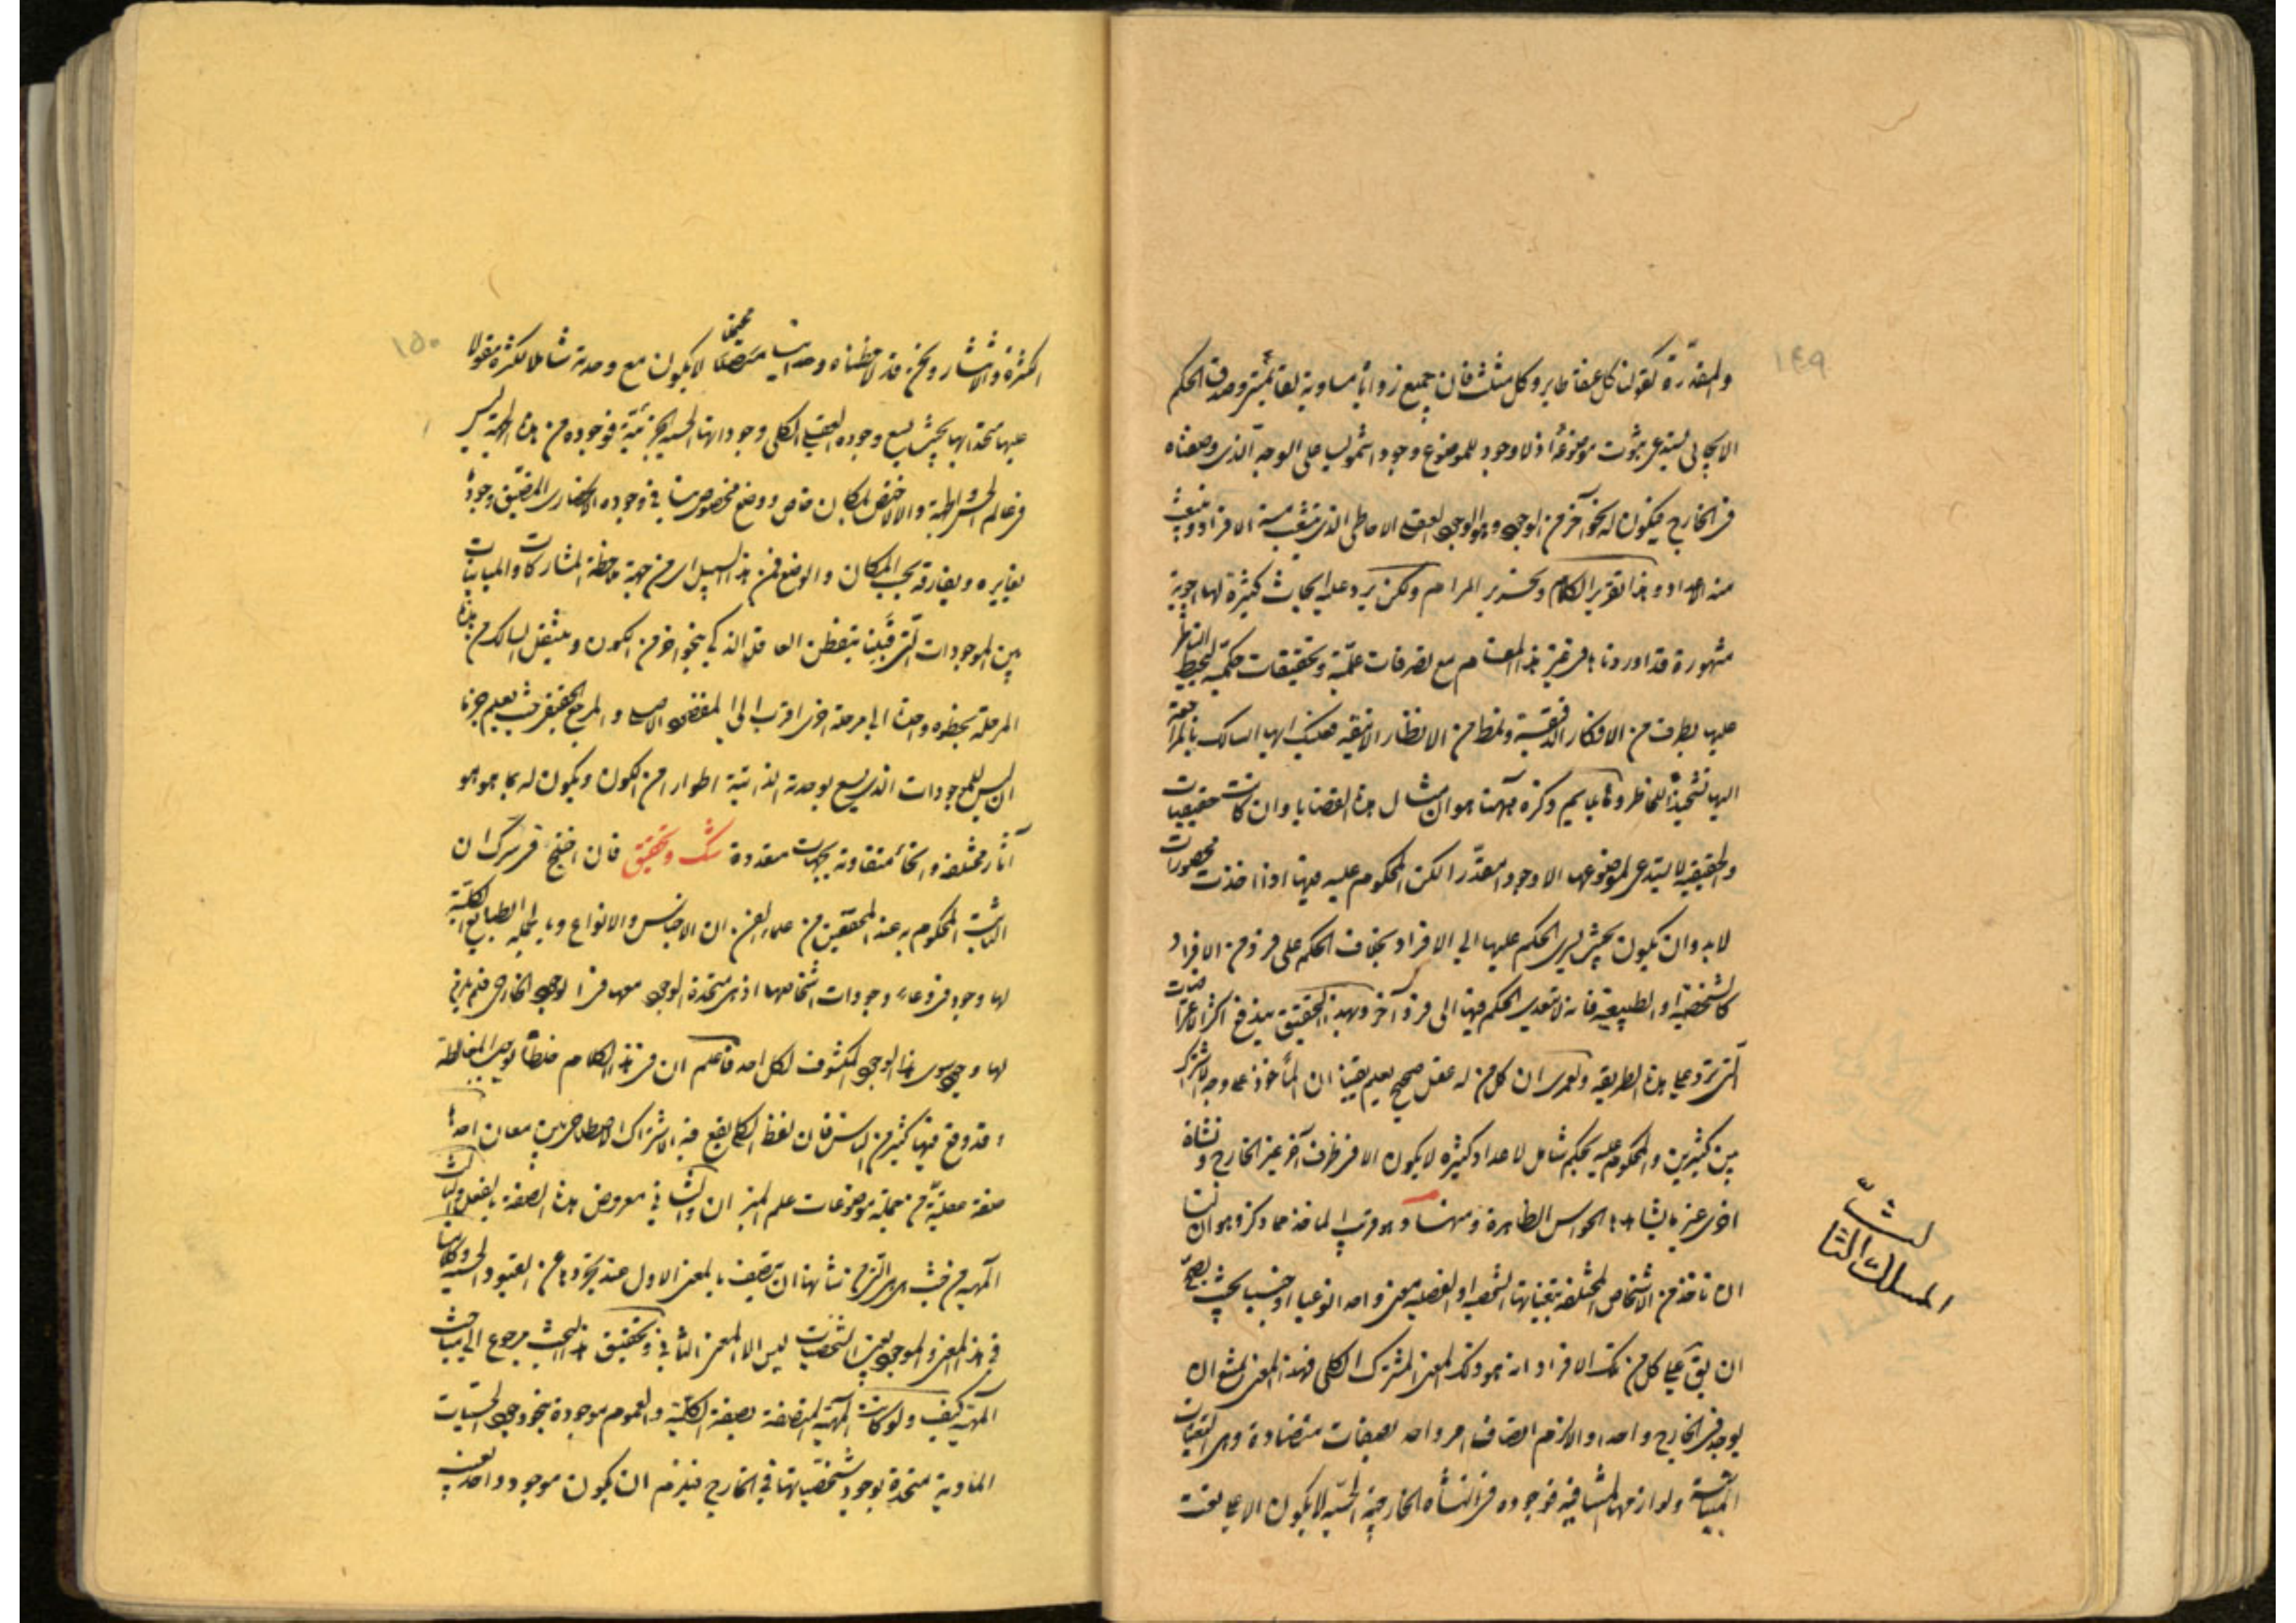 ١٤٩
والمقدرة كقولنا كل عنقاء طاير وكل مثلث فان جميع زواياه مساوية لقائمتين وصدق الحكم
الايجابى يستدعى ثبوت موضوعه اذ لا وجود للموضوع وجودا شموليا على الوجه الذى وصفناه
فى الخارج فيكون له نحو آخر من الوجود وهو الوجود العقلى الاحاطى الذى ينشعب منه الافراد وينبعث
منه الاعداد وهذا تقرير الكلام وتحرير المرام ولكن يرد عليه ابحاث كثيرة لها اجوبة
مشهورة قد اوردناها فى غير هذا المقام مع تصرفات علمية وتحقيقات حكمية ليحيط الناظر
عليها بطرف من الافكار الدقيقة ونمط من الانظار الانيقة فعليك ايها السالك بالمراجعة
اليها تشحيذا للخاطر ومما يلايم ذكره ههنا هو ان امثال هذه القضايا وان كانت حقيقيات
والحقيقية لا يستدعى لموضوعها الا وجودا مقدرا لكن المحكوم عليه فيها اذا اخذت محصورات
لابد وان يكون بحيث يسرى الحكم عليها الى الافراد بخلاف الحكم على فرد من الافراد
كالشخصية او الطبيعية فانه لا يتعدى الحكم فيها الى فرد آخر وبهذا التحقيق يندفع اكثر الاعتراضات
التى ترد على هذه الطريقة ولعمرى ان كل من له عقل صحيح يعلم يقينا ان المأخوذ على وجه الاشتراك
بين كثيرين والمحكوم عليه بحكم شامل لاعداد كثيرة لا يكون الا فى ظرف آخر غير الخارج ونشاة
اخرى غير ما يشاهد بالحواس الظاهرة ومنها وهو قريب الماخذ مما ذكر وهو ان لنا
ان ناخذ من الاشخاص المختلفة بتعيناتها الشخصية او الفصلية معنى واحدا نوعيا او جنسيا بحيث يصح
ان يق على كل من تلك الافراد انه هو وذلك المعنى المشترك الكلى فهذا المعنى يمتنع ان
يوجد فى الخارج واحدا والا لزم اتصاف امر واحد بصفات متضادة وهى التعينات
المتباينة ولوازمها المتنافية فوجوده فى النشأة الخارجية الحسية لا يكون الا على نعت
المسلك الثالث
١٥٠
الكثرة والانتشار ونحن قد لاحظناه وحدانيا محيطا لا يكون مع وحدته شاملا لكثرة مقولا
عليها متحدا بها بحيث يسع وجوده العقلى الكلى وجوداتها الحسية الجزئية فوجوده من هذه الجهة ليس
فى عالم الحس والا لاختص بمكان خاص ووضع مخصوص
يغايره ويفارقه بحسب المكان والوضع فمن هذا السبيل اى من جهة ملاحظة المشاركات والمباينات
بين الموجودات التى قبلنا يتفطن العاقل الذكى بنحو آخر من الكون وينتقل السالك من هذه
المرحلة بخطوة واحدة الى مرحلة اخرى اقرب الى المقصد الاصلى والمرجع الحقيقى حيث يعلم جزما
ان ليس للموجودات الذى يسع بوحدته الذاتية اطوارا من الكون ويكون له بما هو هو
آثار مختلفة وانحاء متفاوتة بجهات متعددة شك وتحقيق فان اختلج فى سرك ان
الثابت المحكوم به عند المحققين من علماء الفن ان الاجناس والانواع وبالجملة الطبايع الكلية
لها وجود فى وعاء وجودات اشخاصها اذ هى متحدة الوجود معها فى الوجود الخارجى فلم يبق
لها وجود سوى هذا الوجود المكشوف لكل احد فاعلم ان فى هذا الكلام خلطا يوجب المغالطة
وقد وقع فيها كثير من الناس فان لفظ الكلى يقع فيه الاشتراك الاصطلاحى بين معان احدها
صفة عقلية من جملة موضوعات علم الميزان والثانى معروض هذه الصفة بالفعل والثالث
المهية من حيث هى هى التى من شأنها ان يتصف بالمعنى الاول عند تجردها عن القيود الحسية
فى هذا المعنى والموجود بعين الشخصيات ليس الا المعنى الثانى وتحقيق هذا البحث مرجوع الى مباحث
المهية كيف ولو كانت المهية المتصفة بصفة الكلية والعموم موجودة بنحو وجود الحسيات
المادية متحدة بوجود شخصياتها فى الخارج فيلزم ان يكون موجود واحد بعينه